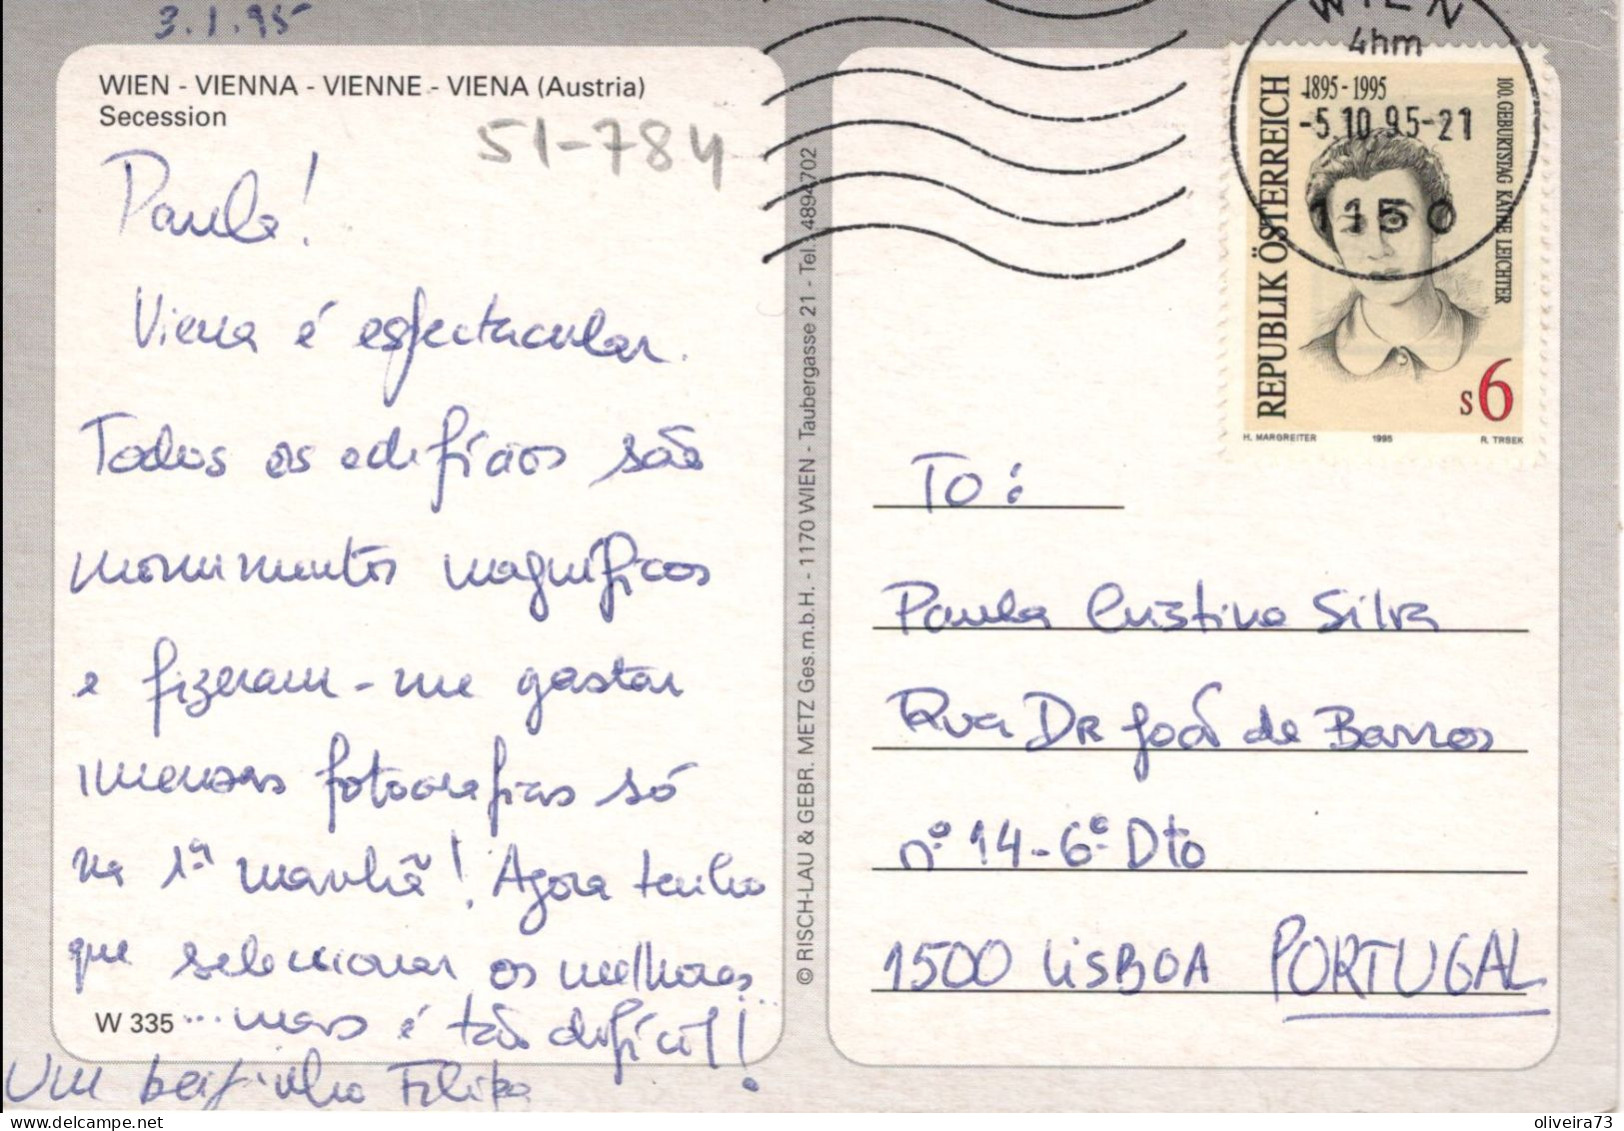 3.1.95
WIEN - VIENNA - VIENNE - VIENA (Austria)
Secession
51-784
Paula!
Viena é espectacular.
Todos os edifícios são
monumentos magníficos
e fizeram-me gastar
imensas fotografias só
na 1ª manhã! Agora tenho
que selecionar os melhores
W 335 ... mas é tão difícil!
Um beijinho Filipa
© RISCH-LAU & GEBR. METZ Ges.m.b.H. - 1170 WIEN - Taubergasse 21 - Tel.: 4894702
WIEN
4hm
-5.10.95-21
1150
1895-1995
REPUBLIK ÖSTERREICH
100. GEBURTSTAG KÄTHE LEICHTER
s6
H. MARGREITER 1995 R. TRSEK
To:
Paula Cristina Silva
Rua DR João de Barros
nº 14-6º Dto
1500 LISBOA PORTUGAL
delcampe.net
oliveira73